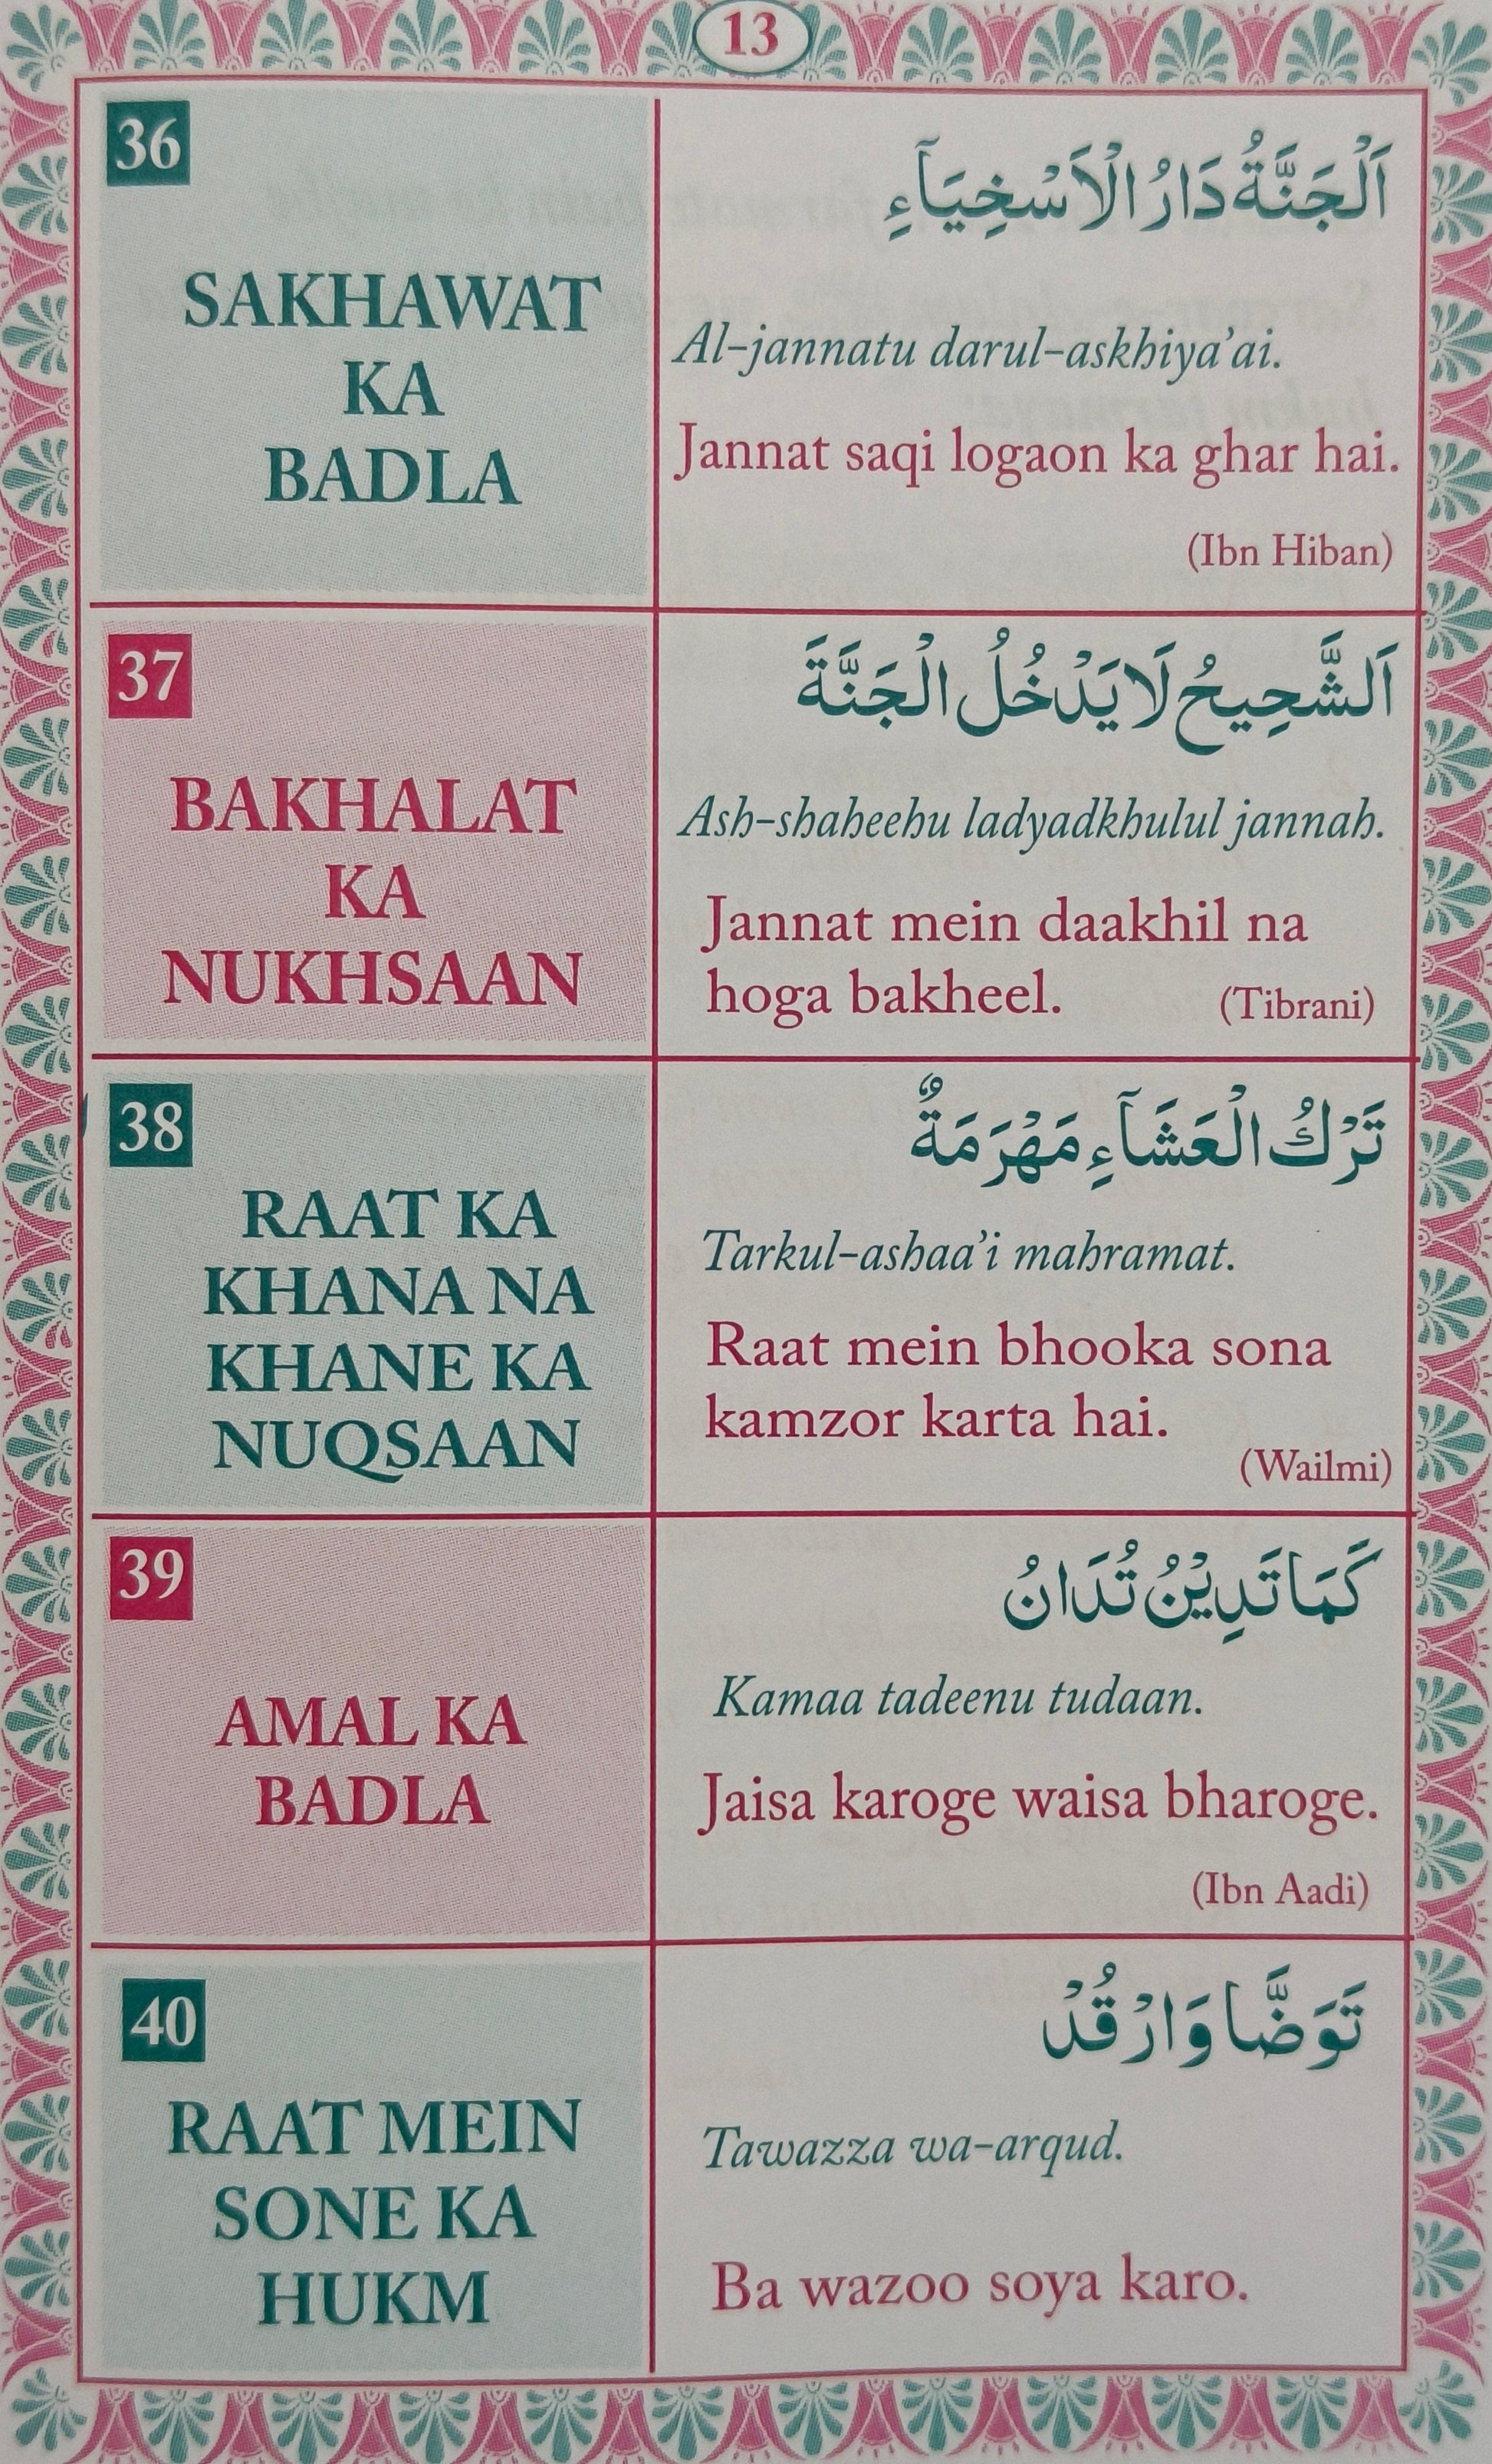 13
36
SAKHAWAT
KA
BADLA
اَلْجَنَّةُ دَارُ الْاَسْخِيَآءِ
Al-jannatu darul-askhiya’ai.
Jannat saqi logaon ka ghar hai.
(Ibn Hiban)
37
BAKHALAT
KA
NUKHSAAN
اَلشَّحِيحُ لَا يَدْخُلُ الْجَنَّةَ
Ash-shaheehu ladyadkhulul jannah.
Jannat mein daakhil na
hoga bakheel. (Tibrani)
38
RAAT KA
KHANA NA
KHANE KA
NUQSAAN
تَرْكُ الْعَشَآءِ مَهْرَمَةٌ
Tarkul-ashaa’i mahramat.
Raat mein bhooka sona
kamzor karta hai.
(Wailmi)
39
AMAL KA
BADLA
كَمَا تَدِيْنُ تُدَانُ
Kamaa tadeenu tudaan.
Jaisa karoge waisa bharoge.
(Ibn Aadi)
40
RAAT MEIN
SONE KA
HUKM
تَوَضَّا وَارْقُدْ
Tawazza wa-arqud.
Ba wazoo soya karo.